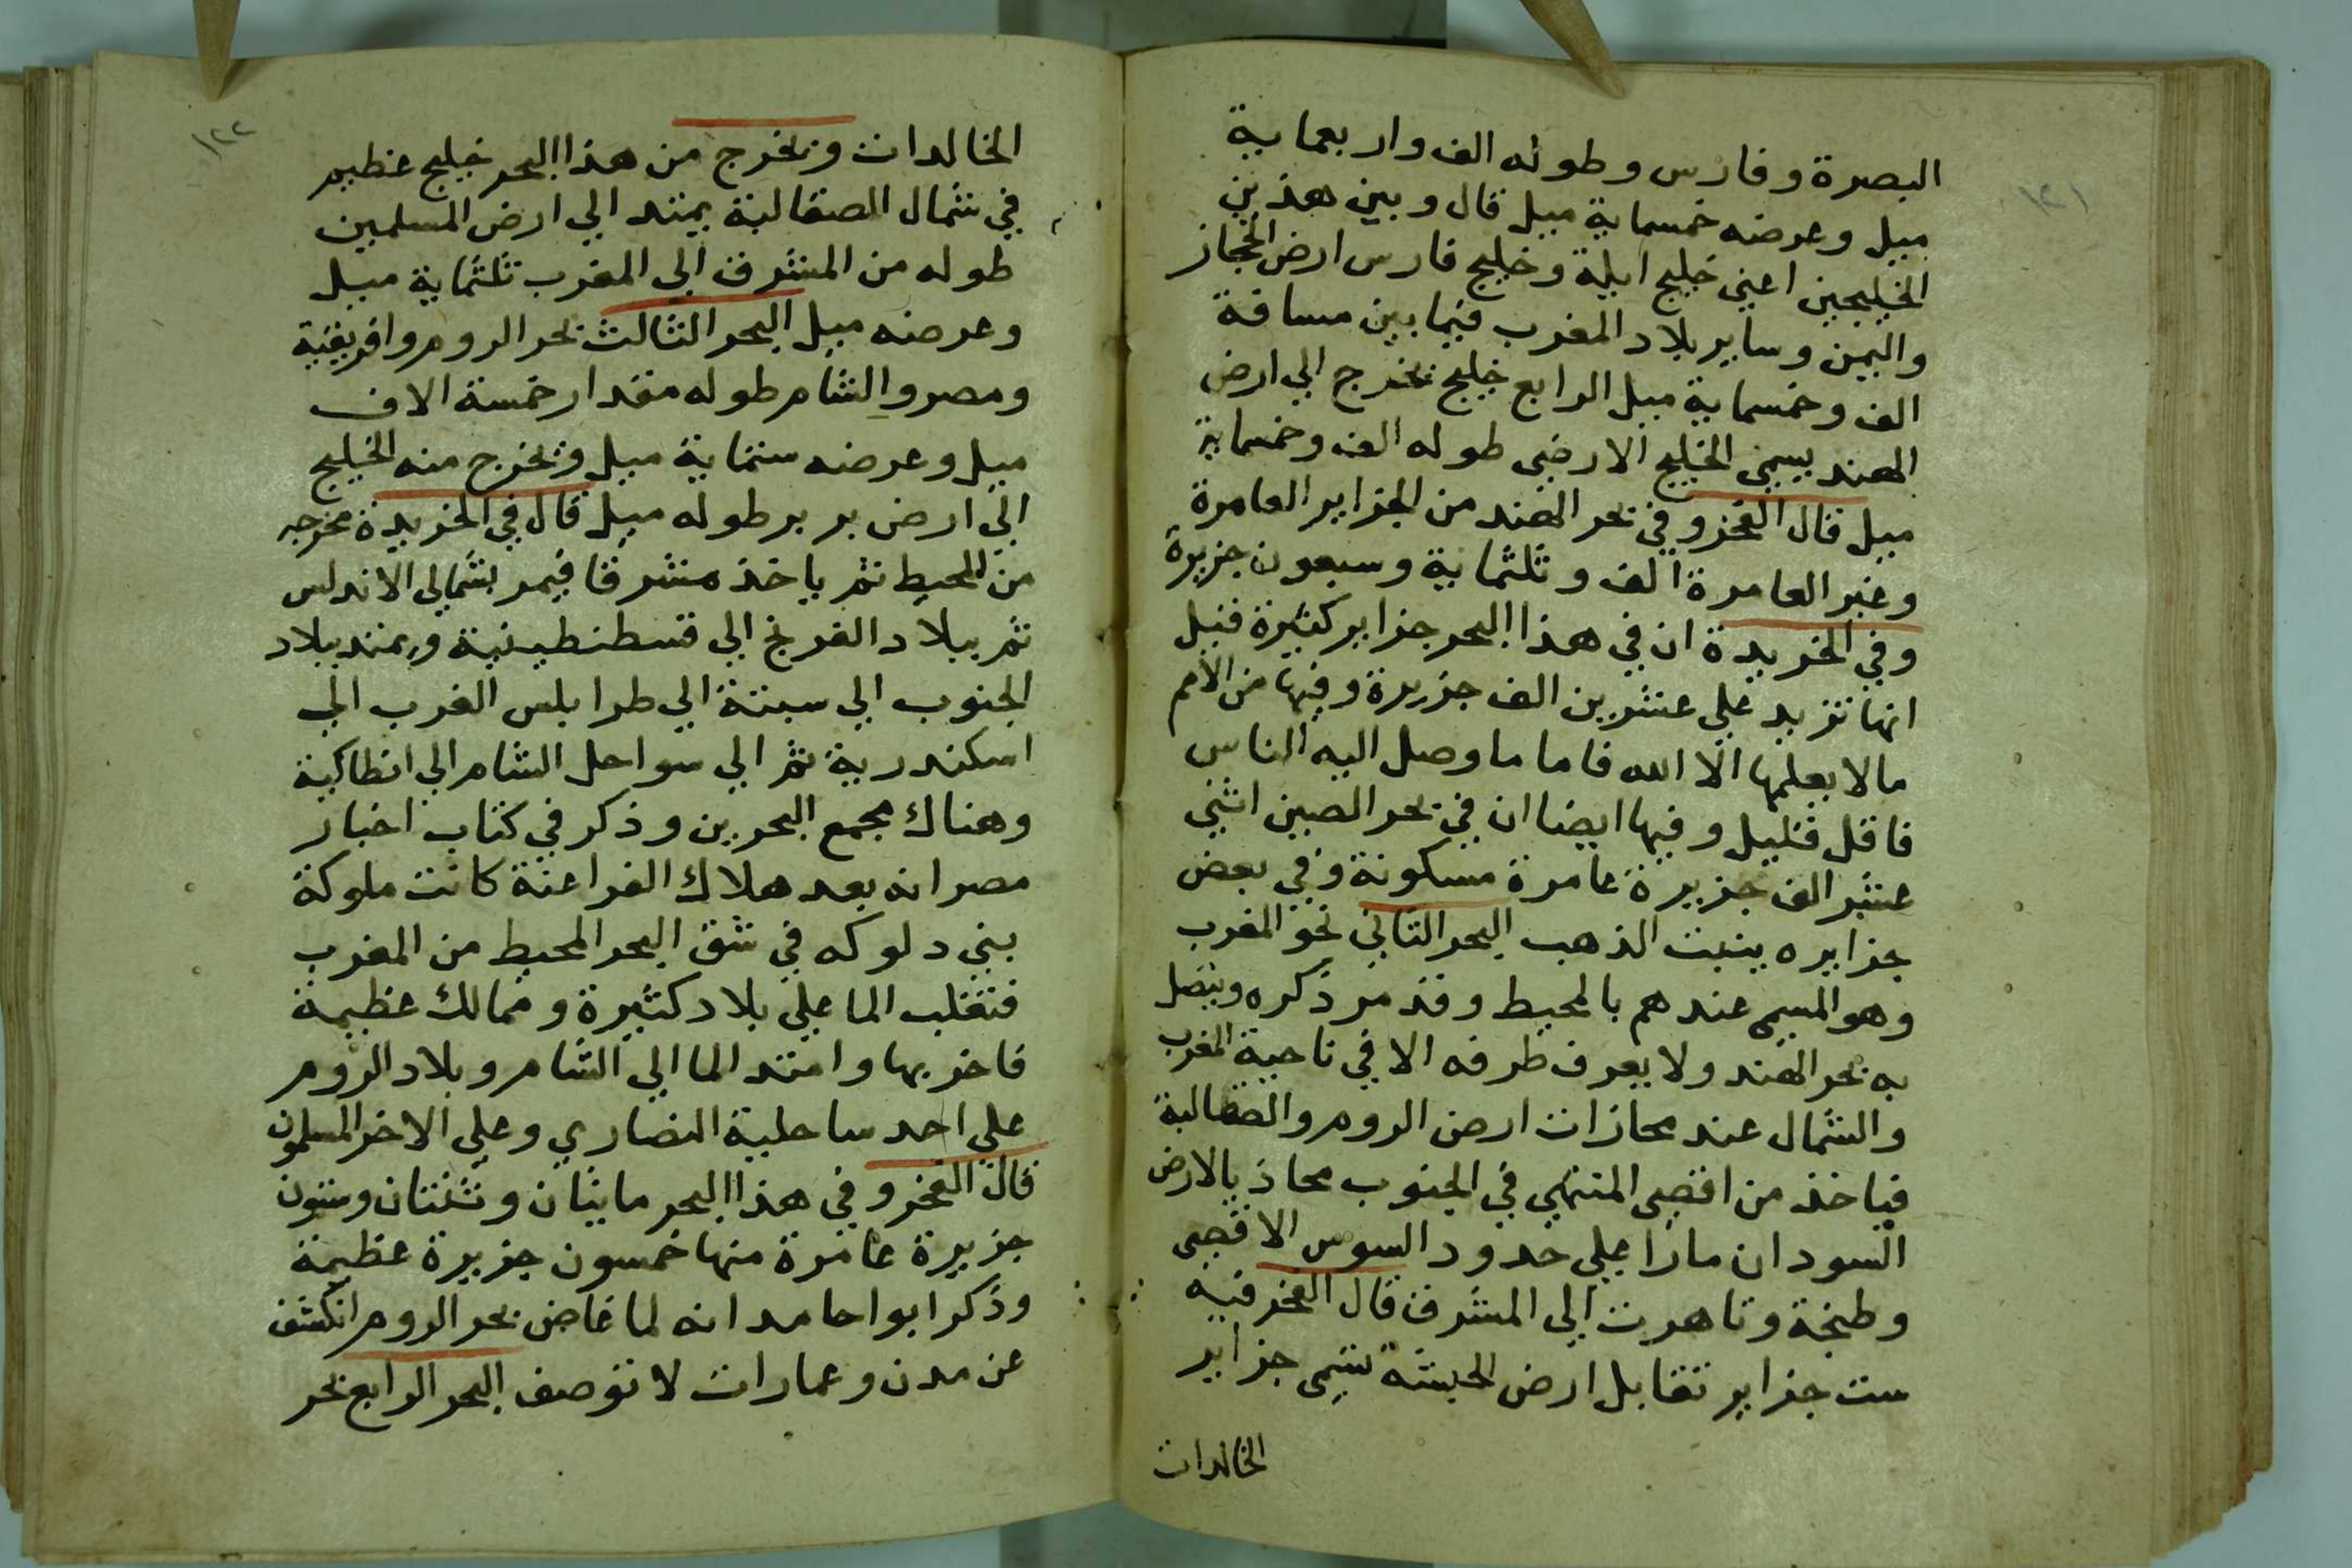 ١٢١
البصرة وفارس وطوله الف واربعماية
ميل وعرضه خمسماية ميل قال وبين هذين
الخليجين اعني خليج ايلة وخليج فارس ارض الحجاز
واليمن وساير بلاد المغرب فيما بين مسافة
الف وخمسماية ميل الرابع خليج يخرج الي ارض
الهند يسمي الخليج الارضي طوله الف وخمسماية
ميل قال الفخر وفي بحر الهند من الجزاير العامرة
وغير العامرة الف وثلثماية وسبعون جزيرة
وفي الخريدة ان في هذا البحر جزاير كثيرة قيل
انها تزيد علي عشرين الف جزيرة وفيها من الامم
ما لا يعلمها الا الله فاما ما وصل اليه الناس
فاقل قليل وفيها ايضا ان في بحر الصين اثني
عشر الف جزيرة عامرة مسكونة وفي بعض
جزايره ينبت الذهب البحر الثاني نحو المغرب
وهو المسمي عندهم بالمحيط وقد مر ذكره ويتصل
به بحر الهند ولا يعرف طرفه الا في ناحية المغرب
والشمال عند محازات ارض الروم والصقالبة
فياخذ من اقصي المنتهي في الجنوب محاذ بالارض
السودان مارا علي حدود السوس الاقصي
وطنجة وتاهرت الي المشرق قال الفخر فيه
ست جزاير تقابل ارض الحبشة تسمي جزاير
الخالدات
١٢٢
الخالدات ويخرج من هذا البحر خليج عظيم
في شمال الصقالبة يمتد الي ارض المسلمين
طوله من المشرق الي المغرب ثلثماية ميل
وعرضه ميل البحر الثالث بحر الروم وافريقية
ومصر والشام طوله مقدار خمسة الاف
ميل وعرضه ستماية ميل ويخرج منه الخليج
الي ارض بربر طوله ميل قال في الخريدة مخرجه
من المحيط ثم ياخذ مشرقا فيمر بشمالي الاندلس
ثم ببلاد الفرنج الي قسطنطينية ويمتد ببلاد
الجنوب الي سبتة الي طرابلس الغرب الي
اسكندرية ثم الي سواحل الشام الي انطاكية
وهناك مجمع البحرين وذكر في كتاب اخبار
مصر انه بعد هلاك الفراعنة كانت ملوكة
بني دلوكه في شق البحر المحيط من المغرب
فتغلب الما علي بلاد كثيرة وممالك عظيمة
فاخربها وامتد الما الي الشام وبلاد الروم
علي احد ساحلية النصاري وعلي الاخر المسلمون
قال الفخر وفي هذا البحر مايتان وثنتان وستون
جزيرة عامرة منها خمسون جزيرة عظيمة
وذكر ابوا حامد انه لما غاض بحر الروم انكشف
عن مدن وعمارات لا توصف البحر الرابع بحر